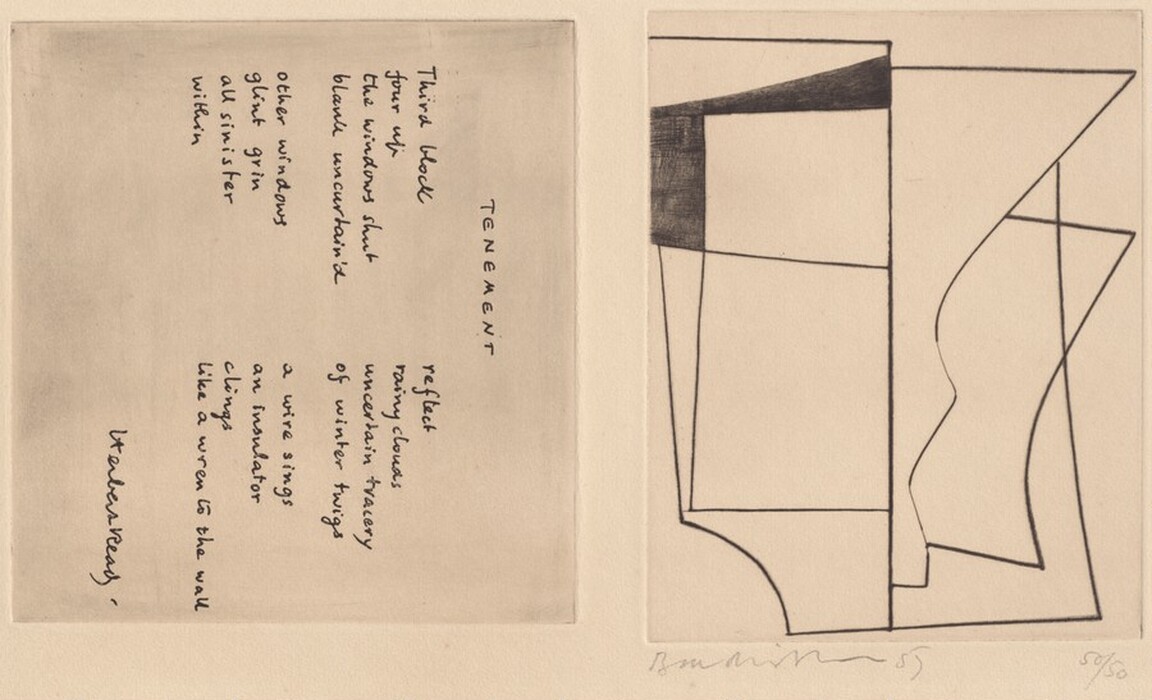 TENEMENT
Third block
four up
the windows shut
blank uncurtain'd
other windows
glint grin
all sinister
within
reflect
rainy clouds
uncertain tracery
of winter twigs
a wire sings
an insulator
clings
like a wren to the wall
Herbert Read.
50/50